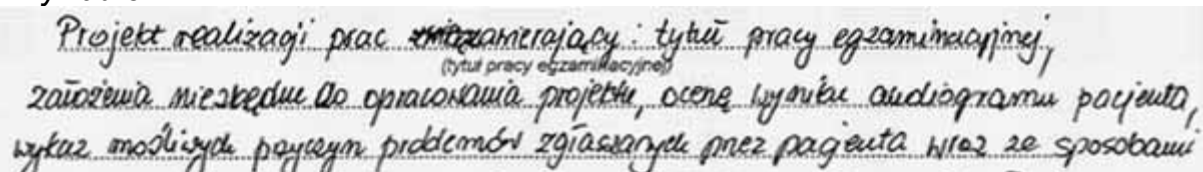 Projekt realizacji prac zawierający: tytuł pracy egzaminacyjnej,
(tytuł pracy egzaminacyjnej)
założenia niezbędne do opracowania projektu, ocenę wyników audiogramu pacjenta,
wykaz możliwych przyczyn problemów zgłaszanych przez pacjenta wraz ze sposobami